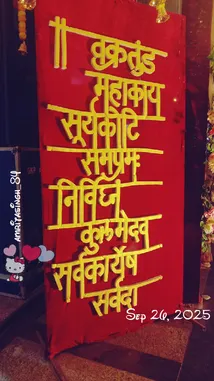 ॥ वक्रतुंड
महाकाय
सूर्यकोटि
समप्रभः
निर्विघ्नं
कुरूमेदेव
सर्वकार्येषु
सर्वदा
AMRITASINGH_84
Sep 26, 2025